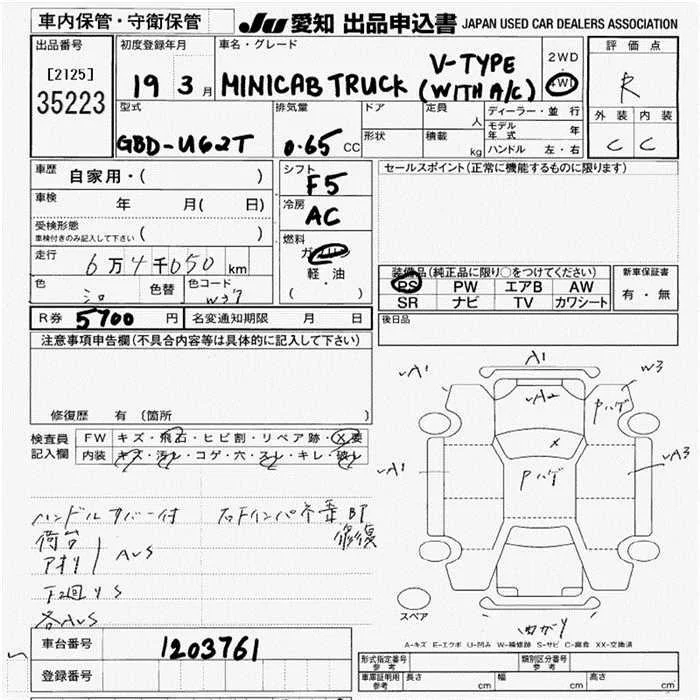 車内保管・守衛保管
JU 愛知 出品申込書 JAPAN USED CAR DEALERS ASSOCIATION
出品番号
[2125]
35223
初度登録年月
19 3 月
車名・グレード
MINICAB TRUCK V-TYPE (WITH A/C)
2WD
4WD
評価点
R
外装 内装
C C
型式
GBD-U62T
排気量
0.65 CC
ドア
形状
定員 人
積載 kg
ディーラー・並行
モデル年式 年
ハンドル 左・右
車歴 自家用・( )
車検 年 月( 日)
受検形態
車検付きのみ記入して下さい
走行 6万4千050 km
色 シロ 色替
色コード W37
シフト
F5
冷房
AC
燃料
ガソリン
軽・油
( )
セールスポイント(正常に機能するものに限ります)
装備品(純正品に限り○をつけてください)
PS PW エアB AW
SR ナビ TV カワシート
新車保証書
有・無
R券 5700 円 名変通知期限 月 日
後日品
注意事項申告欄(不具合内容等は具体的に記入して下さい)
修復歴 有(箇所 )
検査員記入欄
FW キズ・飛石・ヒビ割・リペア跡・X要
内装 キズ・汚レ・コゲ・穴・スレ・キレ・破レ
ハンドルカバー付
荷台
アオリ AUS
下廻り S
各AUS
右ドインパネ 修復
A1
W3
A1
A2
Pハゲ
X
A1
Pハゲ
A3
スペア
マガリ
A-キズ E-エクボ U-凹み W-補修跡 S-サビ C-腐食 XX-交換済
車台番号 1203761
登録番号
形式指定番号 参考
類別区分番号 参考
車庫証明用 参考 長さ cm 幅 cm 高さ cm